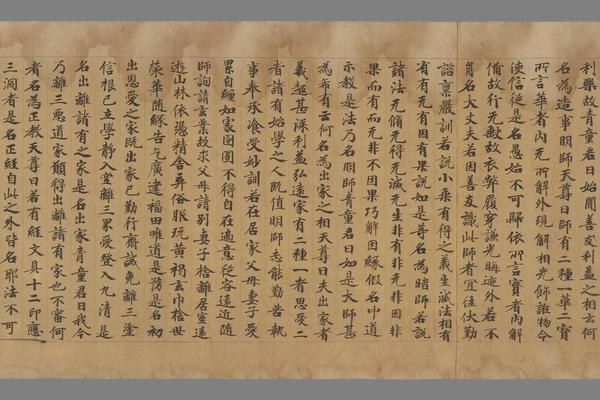 利樂故青童君曰始聞善友利益之相云何
名為造事明師天尊曰師有二種一華二實
所言華者内无所解外現解相光飾誰物令
使信従是名愚始不可歸依所言實者内解
備故行无歇故衣弊履穿謙光晦迹外若不
肖名大丈夫若因善友識此師者宜往伏勤
諮稟嚴訓若說小乗有得之義生滅法相有
有有无有因有果說如是等名為暗師若說
諸法无脩无得无滅无生非有非无非因非
果而有而无非不因果巧解因緣假名中道
示教是法乃名明師青童君曰如是大師甚
為希有云何名為出家之相天尊曰夫出家者
義趣甚深利益弘遠家有二種一者恩愛二
者諸有始學之人既值明師志能勤苦執
事奉承飡受妙訓若在居家父母妻子愛
累自纏如處囹圄不得自在適意従容遠近随
師詢請玄業故求父母請別妻子捨離居室遠
遊山林依憑精舍弃俗服玩黄褐玄巾捨世
榮華随緣告乞廣建福田唯道是務是名初
出恩愛之家既出家已勤行齋誡免離三塗
信根已立學静入室離三界愛登入九清是
名出離諸有之家是名出家青童君曰我今
乃離三惡道家願得出離諸有家也不審何
者名為正教天尊曰若有經文具十二印應
三洞者是名正經自此之外皆名耶法不可